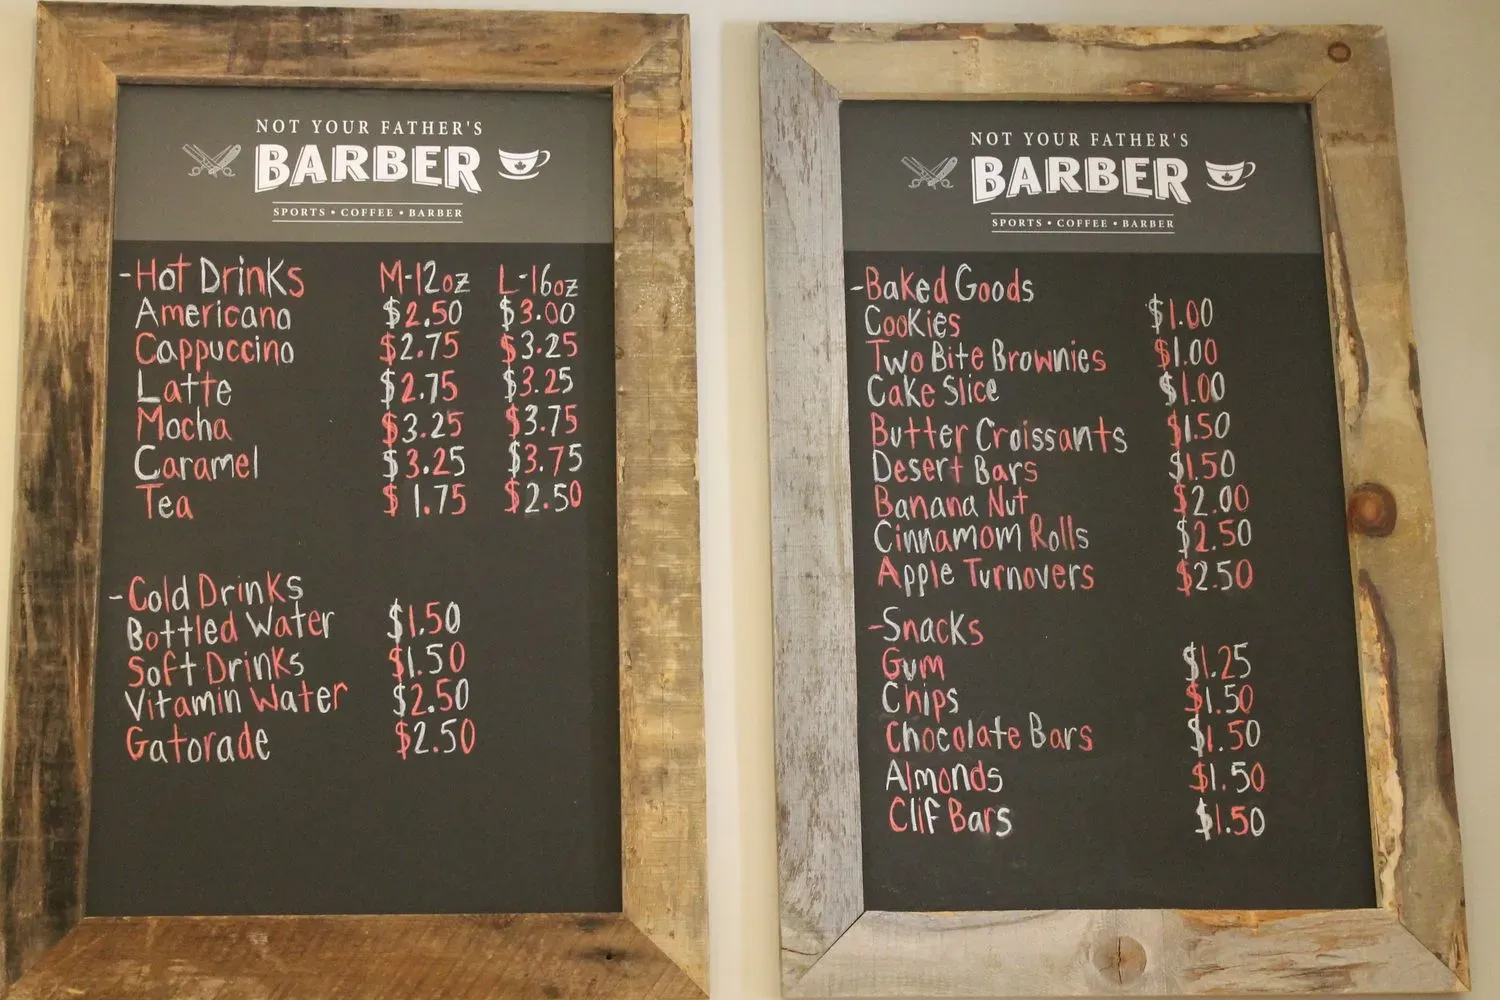 NOT YOUR FATHER'S
BARBER
SPORTS • COFFEE • BARBER
-Hot Drinks M-12oz L-16oz
Americano $2.50 $3.00
Cappuccino $2.75 $3.25
Latte $2.75 $3.25
Mocha $3.25 $3.75
Caramel $3.25 $3.75
Tea $1.75 $2.50
-Cold Drinks
Bottled Water $1.50
Soft Drinks $1.50
Vitamin Water $2.50
Gatorade $2.50
NOT YOUR FATHER'S
BARBER
SPORTS • COFFEE • BARBER
-Baked Goods
Cookies $1.00
Two Bite Brownies $1.00
Cake Slice $1.00
Butter Croissants $1.50
Desert Bars $1.50
Banana Nut $2.00
Cinnamom Rolls $2.50
Apple Turnovers $2.50
-Snacks
Gum $1.25
Chips $1.50
Chocolate Bars $1.50
Almonds $1.50
Clif Bars $1.50